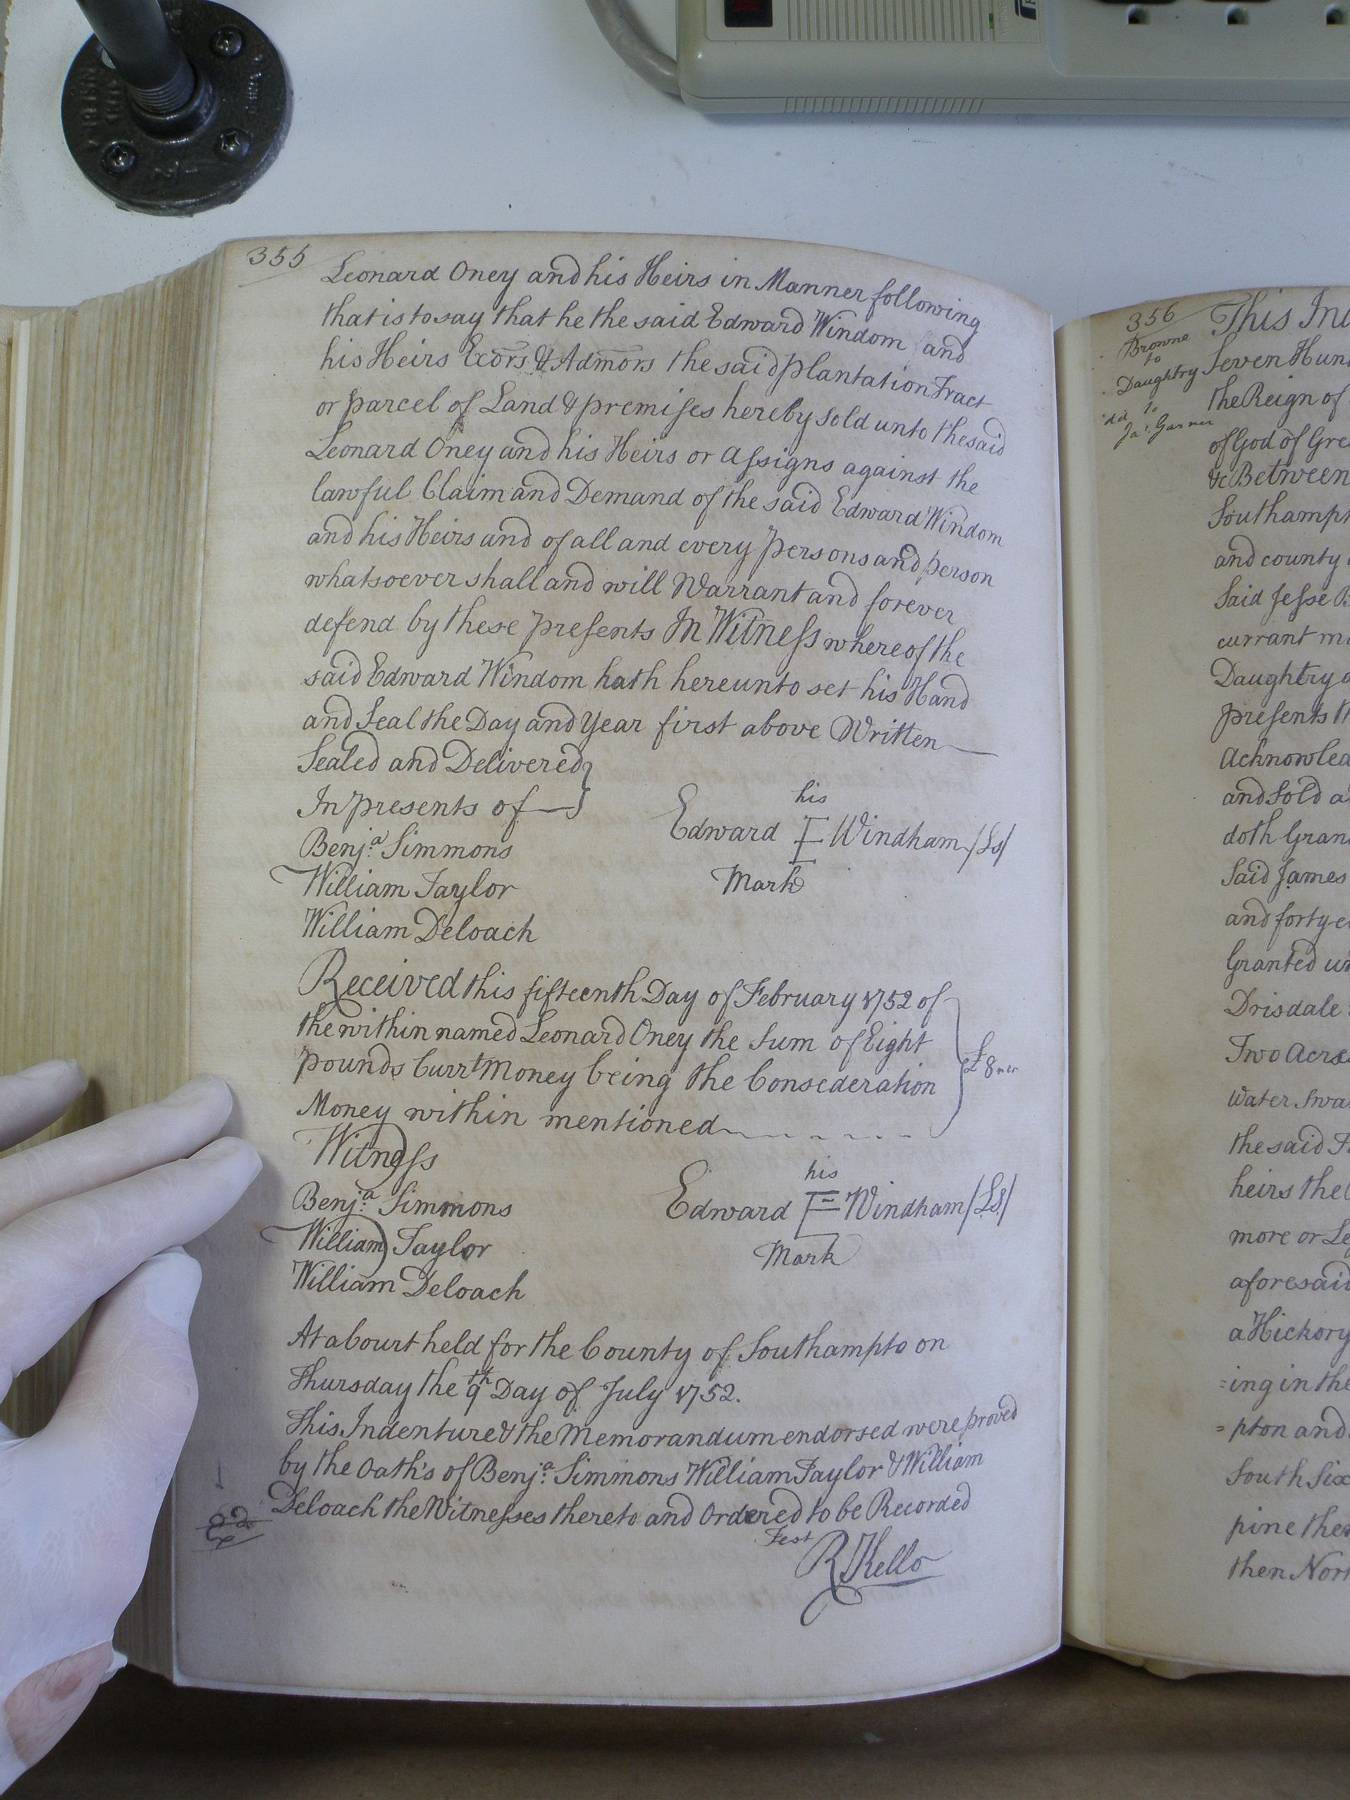 355
Leonard Oney and his Heirs in Manner following
that is to say that he the said Edward Windom and
his Heirs Exors & Admors the said plantation Tract
or parcel of Land & premises hereby sold unto the said
Leonard Oney and his Heirs or Assigns against the
lawful Claim and Demand of the said Edward Windom
and his Heirs and of all and every persons and person
whatsoever shall and will Warrant and forever
defend by these presents In Witness whereof the
said Edward Windom hath hereunto set his Hand
and Seal the Day and Year first above Written
Sealed and Delivered
In presents of
Benja. Simmons
William Taylor
William Deloach
his
Edward Windham /Ls/
Mark
Received this fifteenth Day of February 1752 of
the within named Leonard Oney the Sum of Eight
pounds Currt Money being the Consederation
Money within mentioned
£8
Witness
Benja. Simmons
William Taylor
William Deloach
his
Edward Windham /Ls/
Mark
At a Court held for the County of Southampto on
Thursday the 9th Day of July 1752.
This Indenture & the Memorandum endorsed were proved
by the Oath's of Benja. Simmons William Taylor & William
Deloach the Witnesses thereto and Ordered to be Recorded
Test
R Kello
356
Browne
to
Daughtry
dd to
Jas. Garner
This
Seven
the Reign of
of God of
&c Between
and county
Said Jesse
currant
Daughtry
presents
and Sold
doth
Said James
and
Granted
Drisdale
Two Acres
Water
the said
heirs the
more or
aforesaid
a Hickory
=ing in the
=pton and
South Six
pine
then